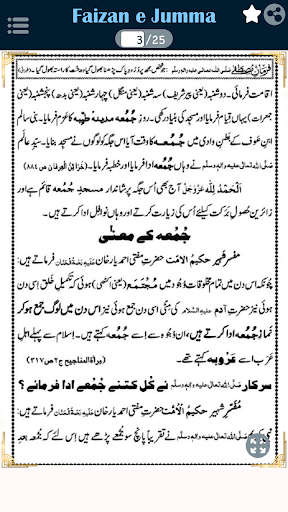 Faizan e Jumma
3/25
فرمانِ مصطفےٰ صلَّی اللہ تعالٰی علیہ واٰلہٖ وسلَّم: جو شخص مجھ پر دُرُودِ پاک پڑھنا بھول گیا وہ جنّت کا راستہ بھول گیا۔ (طبرانی)
اقامت فرمائی۔ دوشنبہ (یعنی پیر شریف) سہ شنبہ (یعنی منگل) چہار شنبہ (یعنی بدھ) پنجشنبہ (یعنی
جمعرات) یہاں قیام فرمایا اور مسجد کی بنیاد رکھی۔ روزِ جُمعہ مدینۂ طیبہ کا عزم فرمایا۔ بنی سالم
ابنِ عوف کے بطنِ وادی میں جُمعہ کا وقت آیا اس جگہ کو لوگوں نے مسجد بنایا۔ سیِّدِ عالَم
صلَّی اللہ تعالٰی علیہ واٰلہٖ وسلَّم نے وہاں جُمعہ ادا فرمایا اور خطبہ فرمایا۔ (خزائن العرفان ص ۸۸۱)
اَلْحَمْدُ لِلّٰہِ عَزَّوَجَلَّ آج بھی اُس جگہ پر شاندار مسجدِ جُمعہ قائم ہے اور
زائرین حصولِ برکت کیلئے اُس کی زیارت کرتے اور وہاں نوافل ادا کرتے ہیں۔
جُمُعہ کے معنٰی
مفسرِ شہیر حکیمُ الاُمَّت حضرتِ مفتی احمد یار خان علیہ رحمۃ الحنان فرماتے ہیں:
چونکہ اس دن میں تمام مخلوقات وُجود میں مُجتَمع (یعنی اکٹھی) ہوئی کہ تکمیلِ خلق اِسی دن
ہوئی نیز حضرتِ آدم علیہ السلام کی مٹی اسی دن جمع ہوئی نیز اس دن میں لوگ جمع ہو کر
نمازِ جُمعہ ادا کرتے ہیں، ان وُجُوہ سے اِسے جُمعہ کہتے ہیں۔ اِسلام سے پہلے اہلِ
عَرَب اسے عَروبہ کہتے تھے۔ (مراٰۃ المناجیح ج ۲ ص ۳۱۷)
سرکار صلَّی اللہ تعالٰی علیہ واٰلہٖ وسلَّم نے کُل کتنے جُمُعے ادا فرمائے؟
مُفَسِّرِ شہیر حکیمُ الاُمَّت حضرتِ مفتی احمد یار خان علیہ رحمۃ الحنان فرماتے ہیں:
نبی صلَّی اللہ تعالٰی علیہ واٰلہٖ وسلَّم نے تقریباً پانچ سو جُمعے پڑھے ہیں اس لئے کہ جُمعہ بعدِ